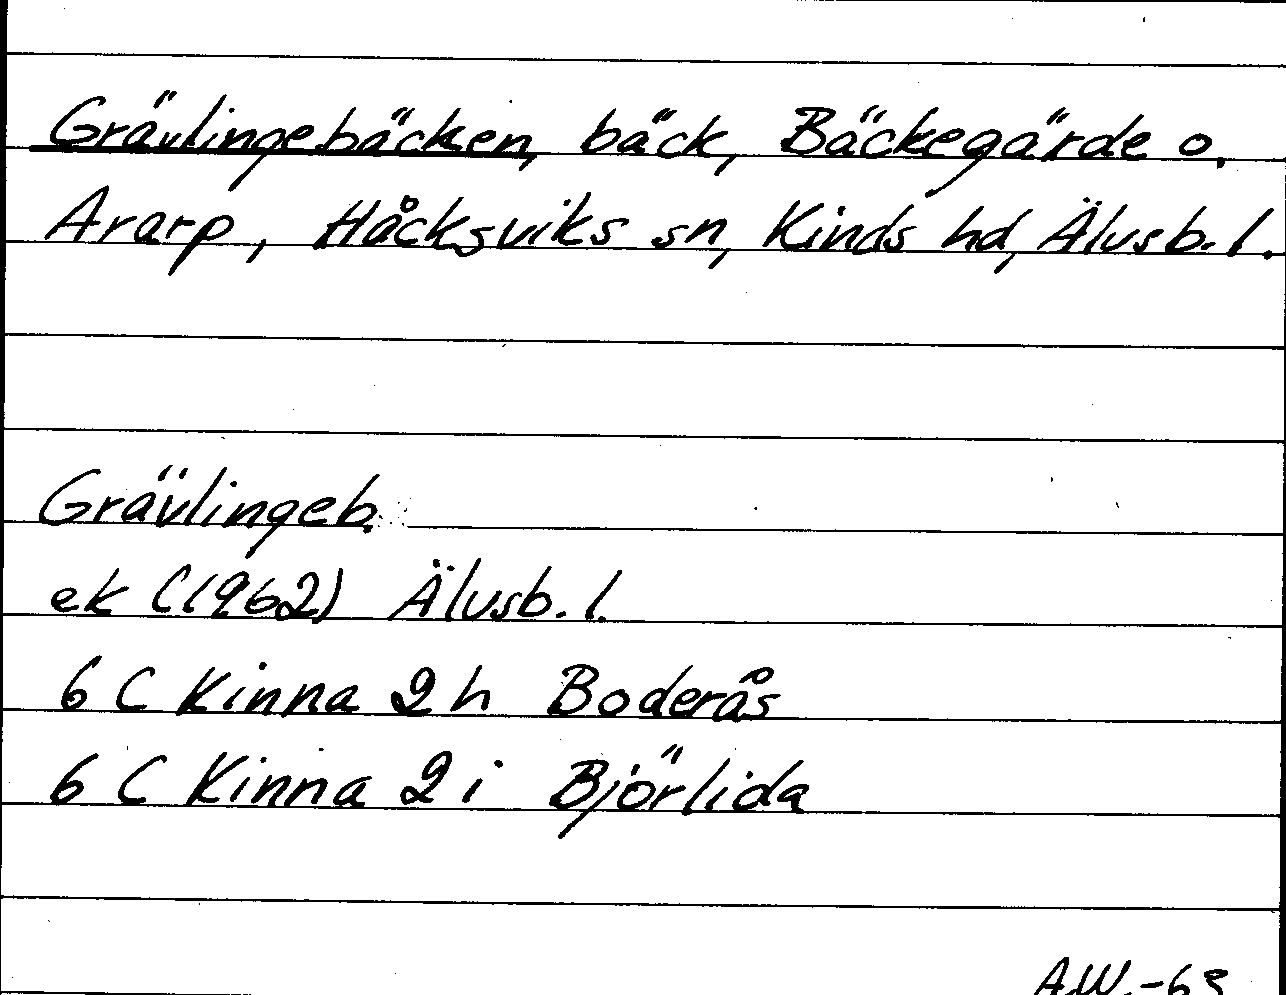 Grävlingebäcken, bäck, Bäckegärde o.
Ararp, Håcksviks sn, Kinds hd, Älvsb. l.
Grävlingeb.
ek (1962) Älvsb. l.
6 C Kinna 2 h Boderås
6 C Kinna 2 i Björlida
A.W. -63